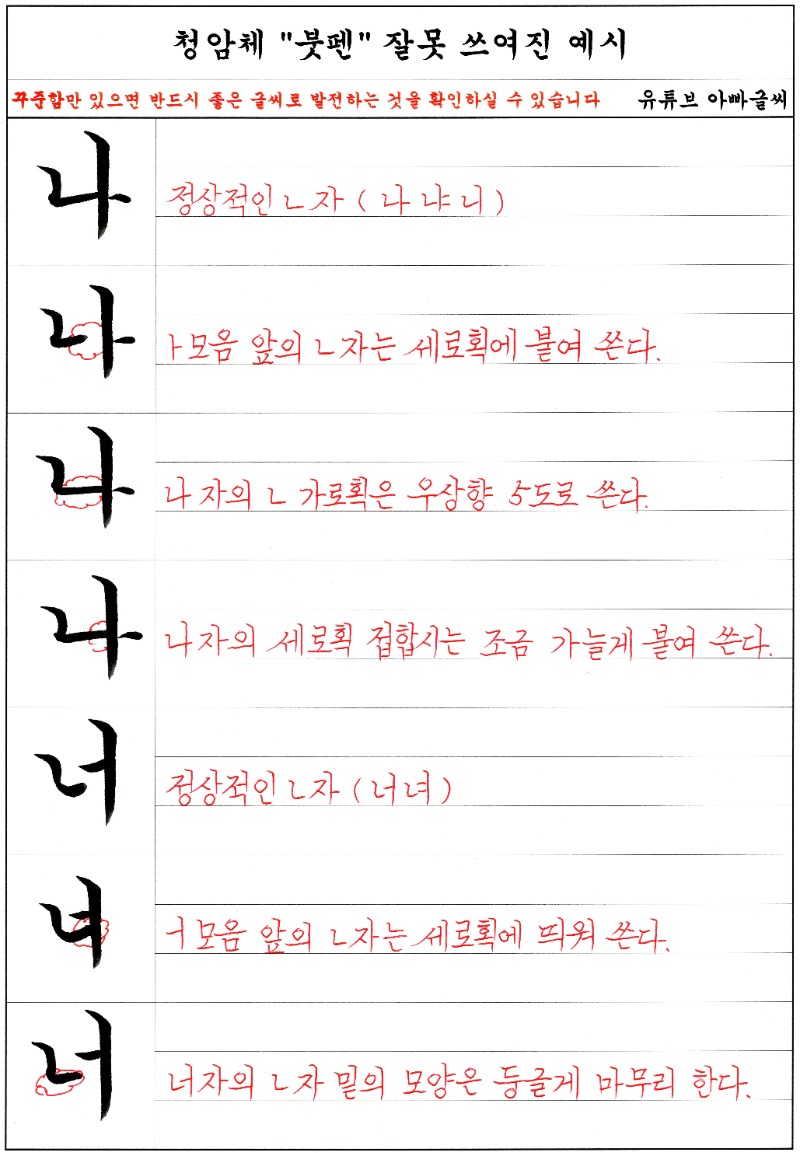 청암체 "붓펜" 잘못 쓰여진 예시
꾸준함만 있으면 반드시 좋은 글씨로 발전하는 것을 확인하실 수 있습니다 유튜브 아빠글씨
나 정상적인 ㄴ자 ( 나 냐 니 )
나 ㅏ모음 앞의 ㄴ자는 세로획에 붙여 쓴다.
나 나 자의 ㄴ 가로획은 우상향 5도로 쓴다.
나 나 자의 세로획 접합시는 조금 가늘게 붙여 쓴다.
너 정상적인 ㄴ자 ( 너 녀 )
너 ㅓ모음 앞의 ㄴ자는 세로획에 띄워 쓴다.
너 너자의 ㄴ자 밑의 모양은 둥글게 마무리 한다.